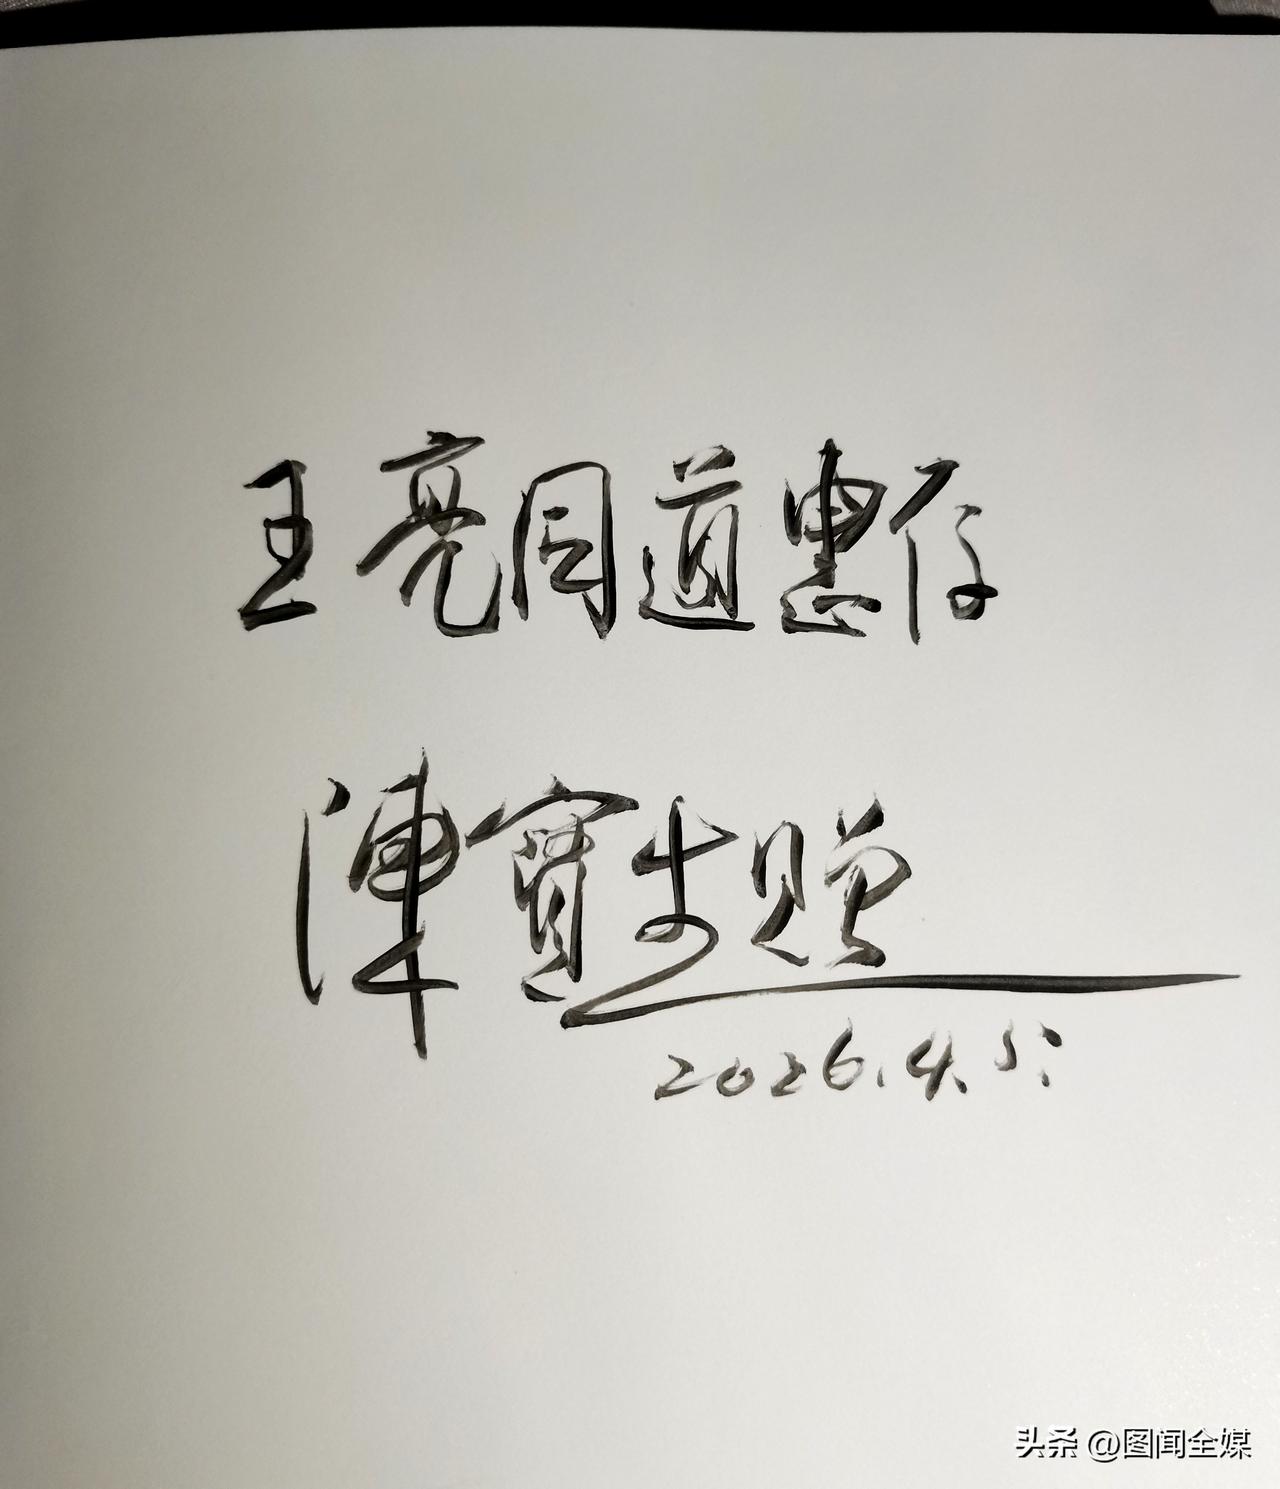 王亮同道惠存
陳寶生贈
2026.4.5
头条 @图闻全媒